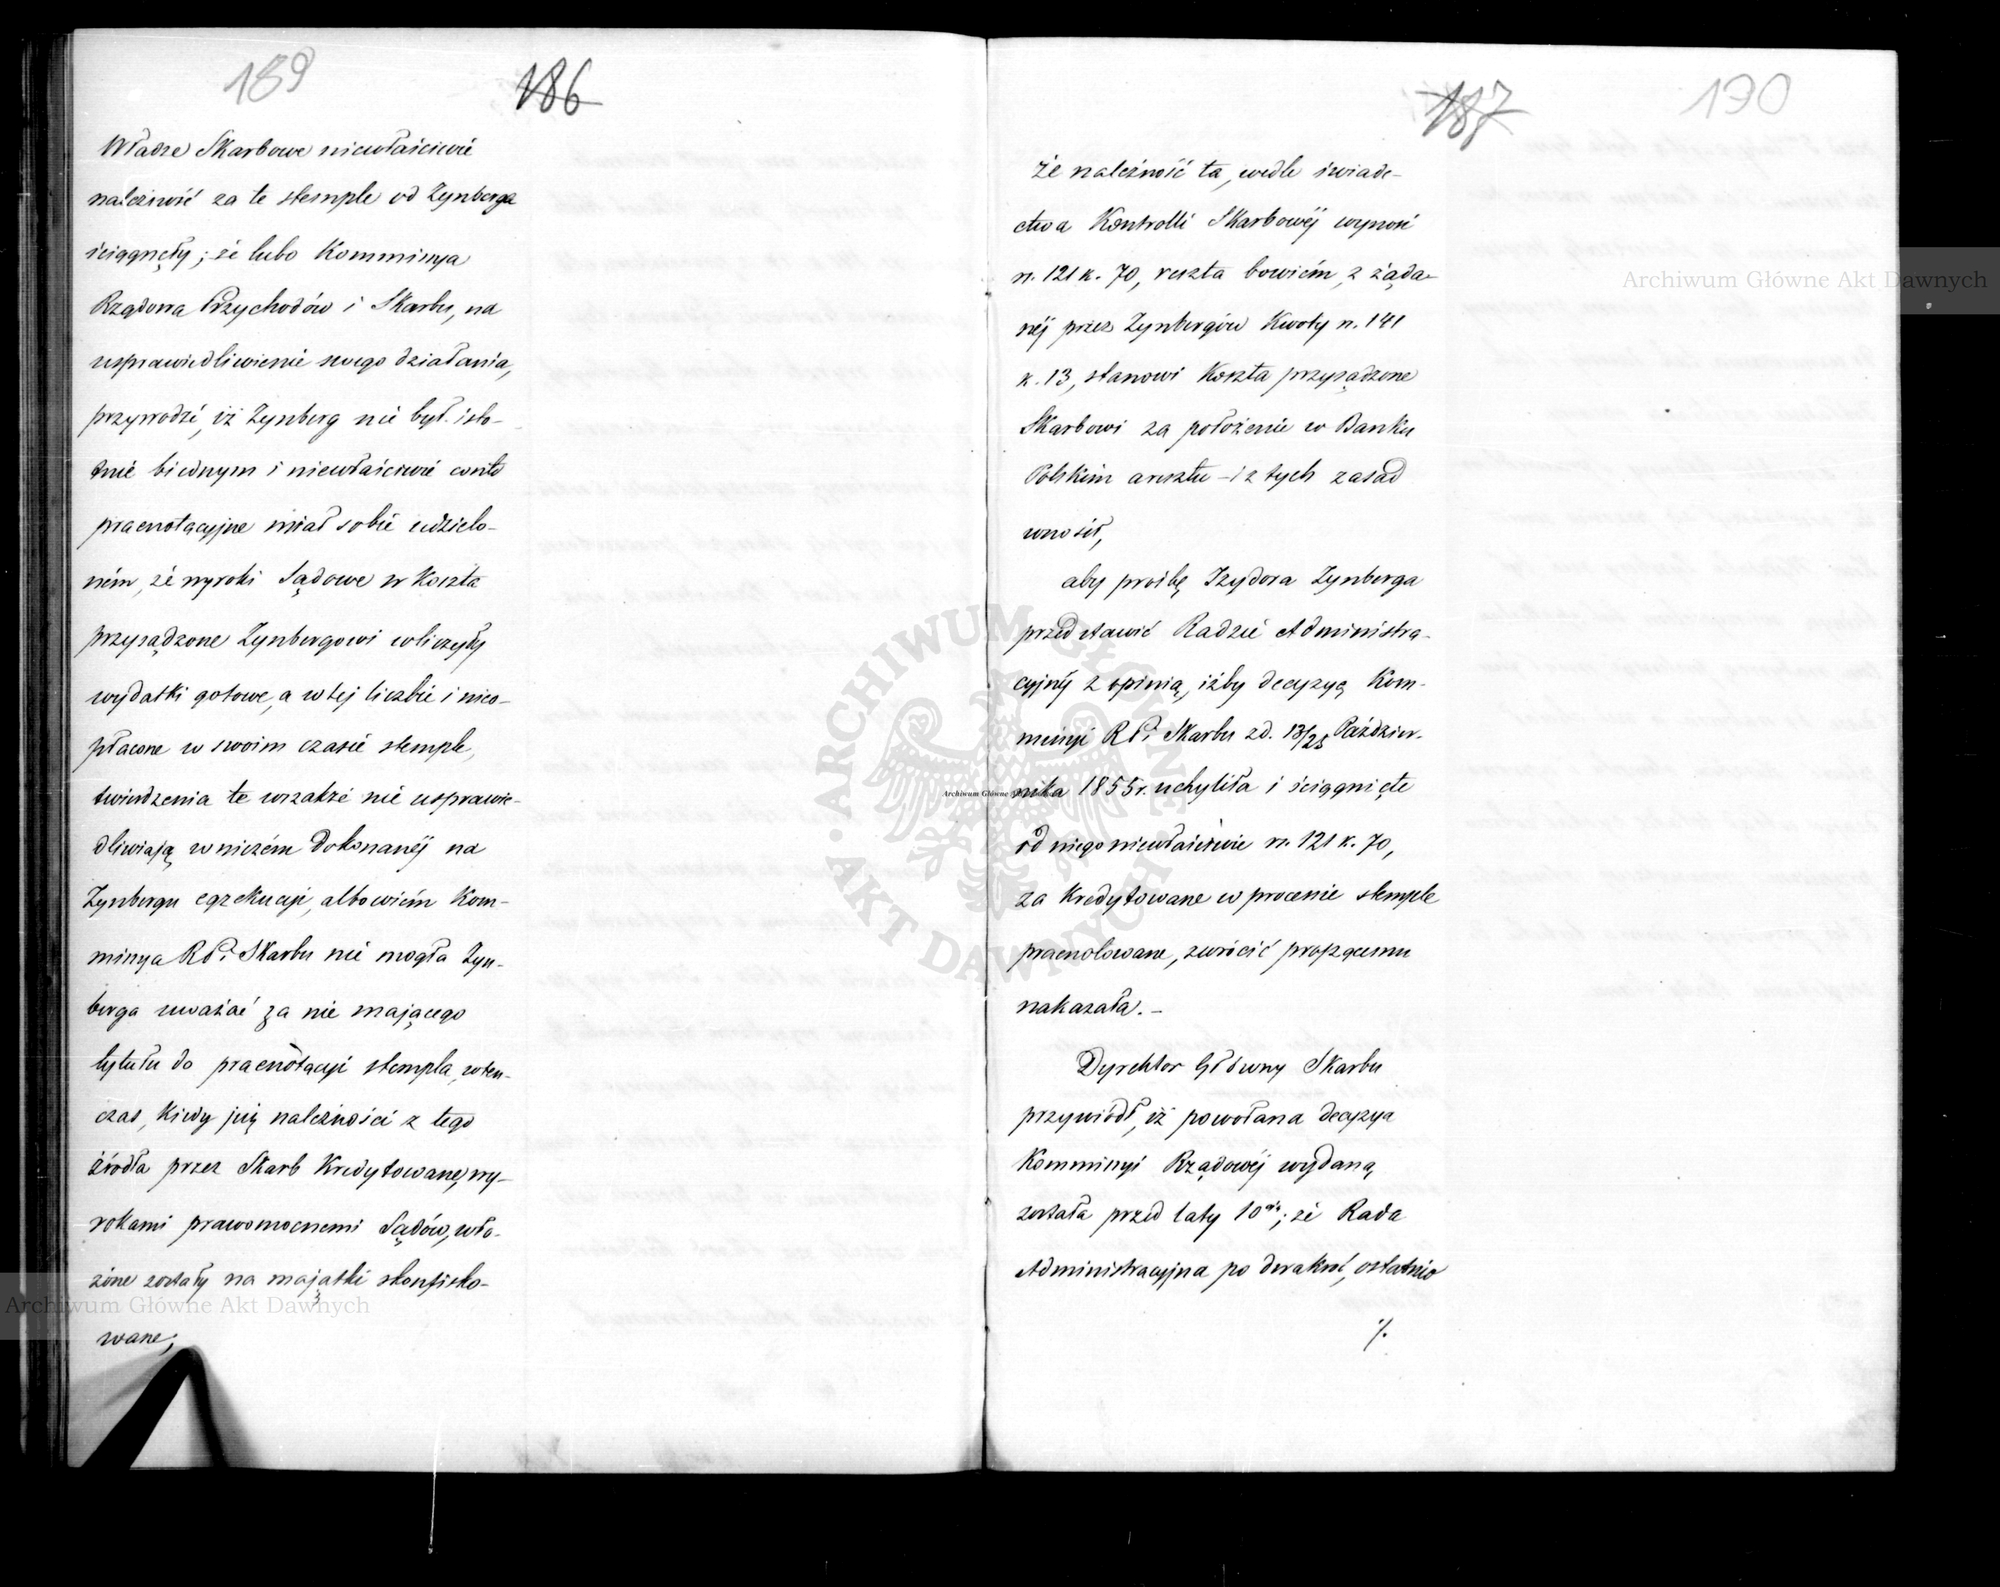 189
186
Władze Skarbowe niewłaściwie
należność za te stemple od Zynberga
ściągnęły; że lubo Kommissya
Rządowa Przychodów i Skarbu, na
usprawiedliwienie swego działania,
przywodzi, iż Zynberg nie był isto-
tnie biednym i niewłaściwie conto
praenotacyjne miał sobie udzielo-
ném, że wyroki Sądowe w koszta
przysądzone Zynbergowi wliczyły
wydatki gotowe, a w tej liczbie i nieo-
płacone w swoim czasie stemple,
twierdzenia te wszakże nie usprawie-
dliwiają w niczém dokonanéj na
Zynbergu egzekucyi, albowiém Kom-
missya R P i Skarbu nie mogła Zyn-
berga uważać za nie mającego
tytułu do praenotacyi stempla, wten-
czas, kiedy już należności z tego
źródła przez Skarb kredytowane, wy-
rokami prawomocnemi Sądów, wło-
żone zostały na majątki skonfisko-
wane;
187
190
że należność ta, wedle świade-
ctwa Kontrolli Skarbowéj wynosi
r. 121 k. 70, reszta bowiém, z żąda-
néj przez Zynbergów kwoty r. 141
k. 13, stanowi koszta przysądzone
Skarbowi za położenie w Banku
Polskim aresztu – i z tych zasad
wnosił,
aby prośbę Izydora Zynberga
przedstawić Radzie Administra-
cyjnéj z opinią, iżby decyzyą Kom-
missyi R P i Skarbu z d. 13/25 Paździer-
nika 1855 r. uchyliła i ściągnięte
od niego niewłaściwie r. 121 k. 70,
za kredytowane w procesie stemple
praenotowane, zwrócić proszącemu
nakazała. –
Dyrektor Główny Skarbu
przywiódł, iż powołana decyzya
Kommissyi Rządowéj wydaną
została przed laty 10ciu; że Rada
Administracyjna po dwakroć, ostatnio
·/.
Archiwum Główne Akt Dawnych
Archiwum Główne Akt Dawnych
ARCHIWUM GŁÓWNE AKT DAWNYCH